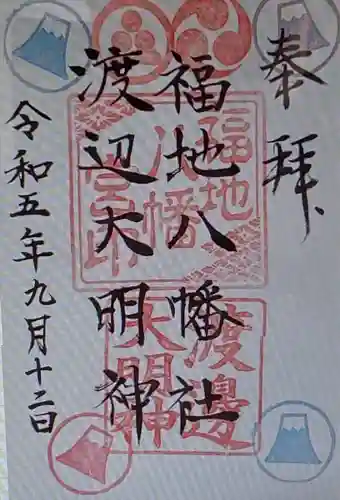 奉拝
福地八幡社
渡辺大明神
令和五年九月十二日
福地
八幡
渡邊
大明神